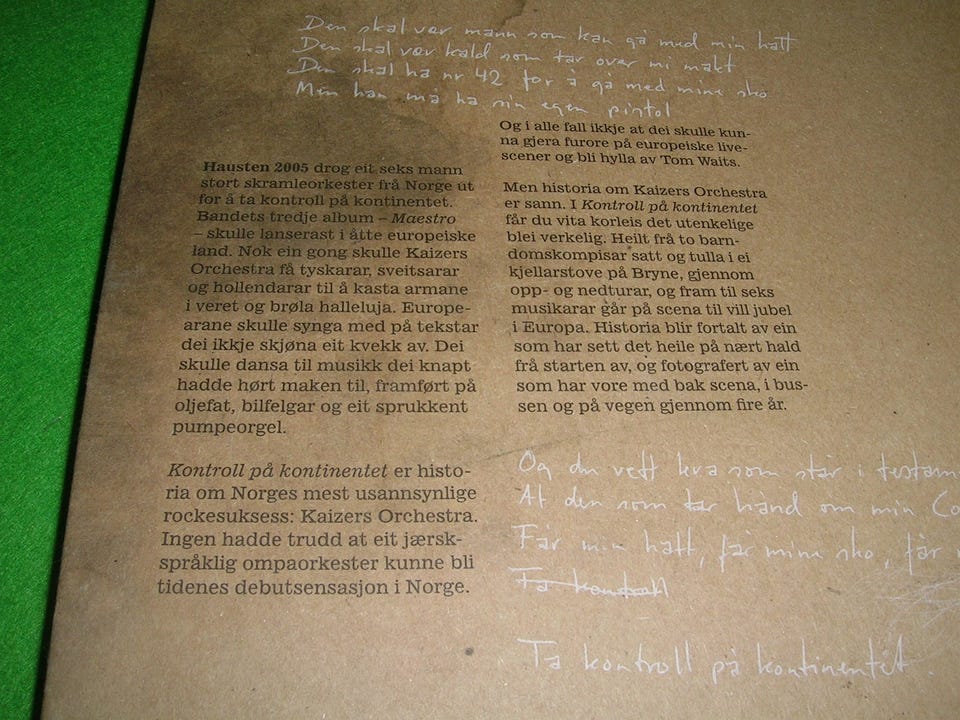 Den skal vær mann som kan gå med min hatt
Den skal vær kald som tar over mi makt
Den skal ha nr 42 for å gå med mine sko
Men han må ha sin egen pistol
Hausten 2005 drog eit seks mann
stort skramleorkester frå Norge ut
for å ta kontroll på kontinentet.
Bandets tredje album – Maestro
– skulle lanserast i åtte europeiske
land. Nok ein gong skulle Kaizers
Orchestra få tyskarar, sveitsarar
og hollendarar til å kasta armane
i veret og brøla halleluja. Europe-
arane skulle synga med på tekstar
dei ikkje skjøna eit kvekk av. Dei
skulle dansa til musikk dei knapt
hadde hørt maken til, framført på
oljefat, bilfelgar og eit sprukkent
pumpeorgel.
Kontroll på kontinentet er histo-
ria om Norges mest usannsynlige
rockesuksess: Kaizers Orchestra.
Ingen hadde trudd at eit jærsk-
språklig ompaorkester kunne bli
tidenes debutsensasjon i Norge.
Og i alle fall ikkje at dei skulle kun-
na gjera furore på europeiske live-
scener og bli hylla av Tom Waits.
Men historia om Kaizers Orchestra
er sann. I Kontroll på kontinentet
får du vita korleis det utenkelige
blei verkelig. Heilt frå to barn-
domskompisar satt og tulla i ei
kjellarstove på Bryne, gjennom
opp- og nedturar, og fram til seks
musikarar går på scena til vill jubel
i Europa. Historia blir fortalt av ein
som har sett det heile på nært hald
frå starten av, og fotografert av ein
som har vore med bak scena, i bus-
sen og på vegen gjennom fire år.
Og du vett kva som står i testam
At den som tar hånd om min Co
Får min hatt, får mine sko, får
Ta kontroll
Ta kontroll på kontinentet.